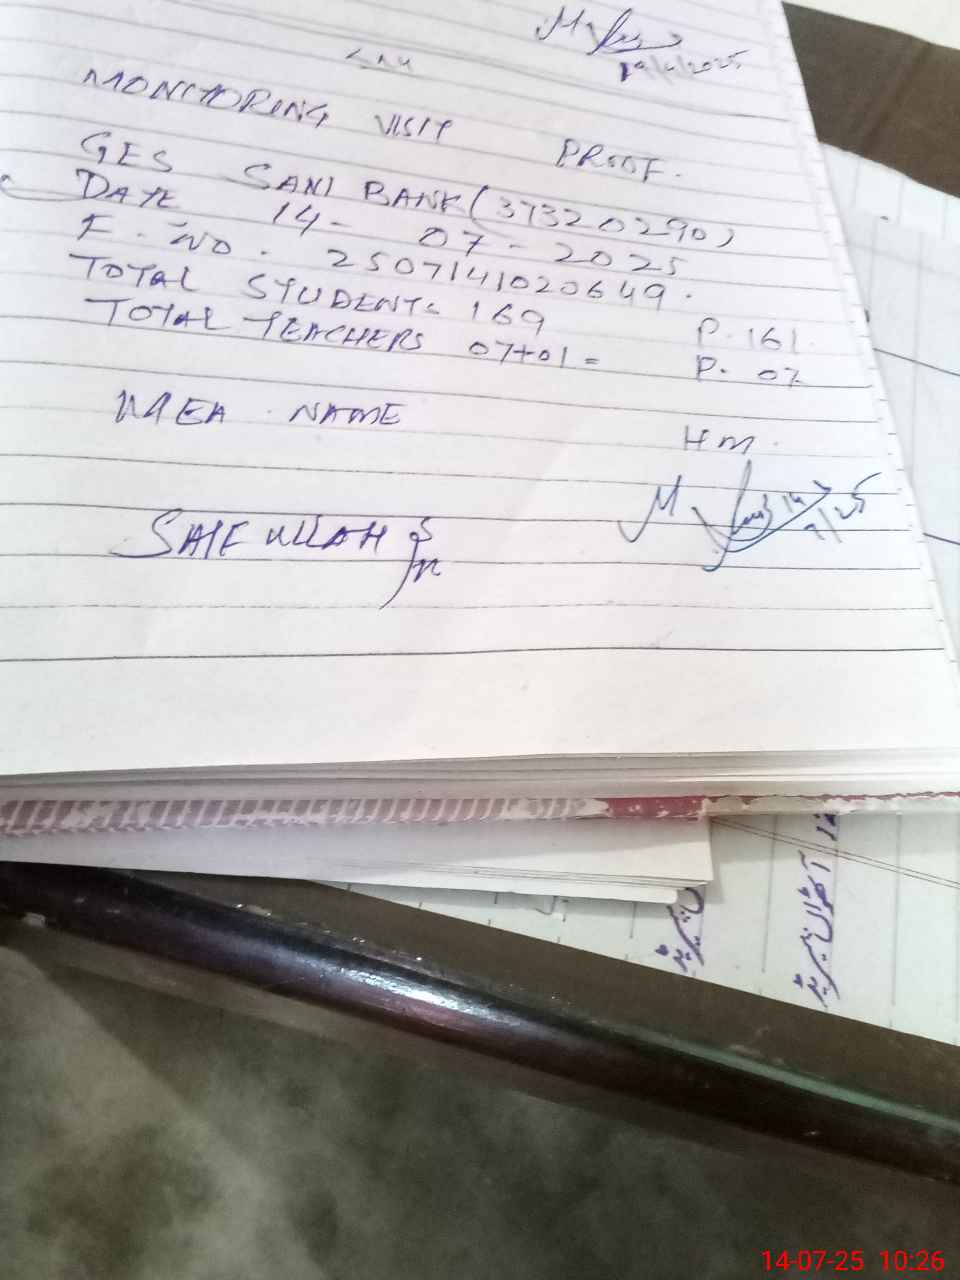 19/4/2025
MONITORING VISIT PROOF.
GES SANI BANK (37320290)
DATE 14-07-2025
F. NO. 2507141020649.
TOTAL STUDENTS 169 P. 161.
TOTAL TEACHERS 07+01= P. 07
MEA NAME
HM.
SAIF ULLAH
14/7/25
14-07-25 10:26